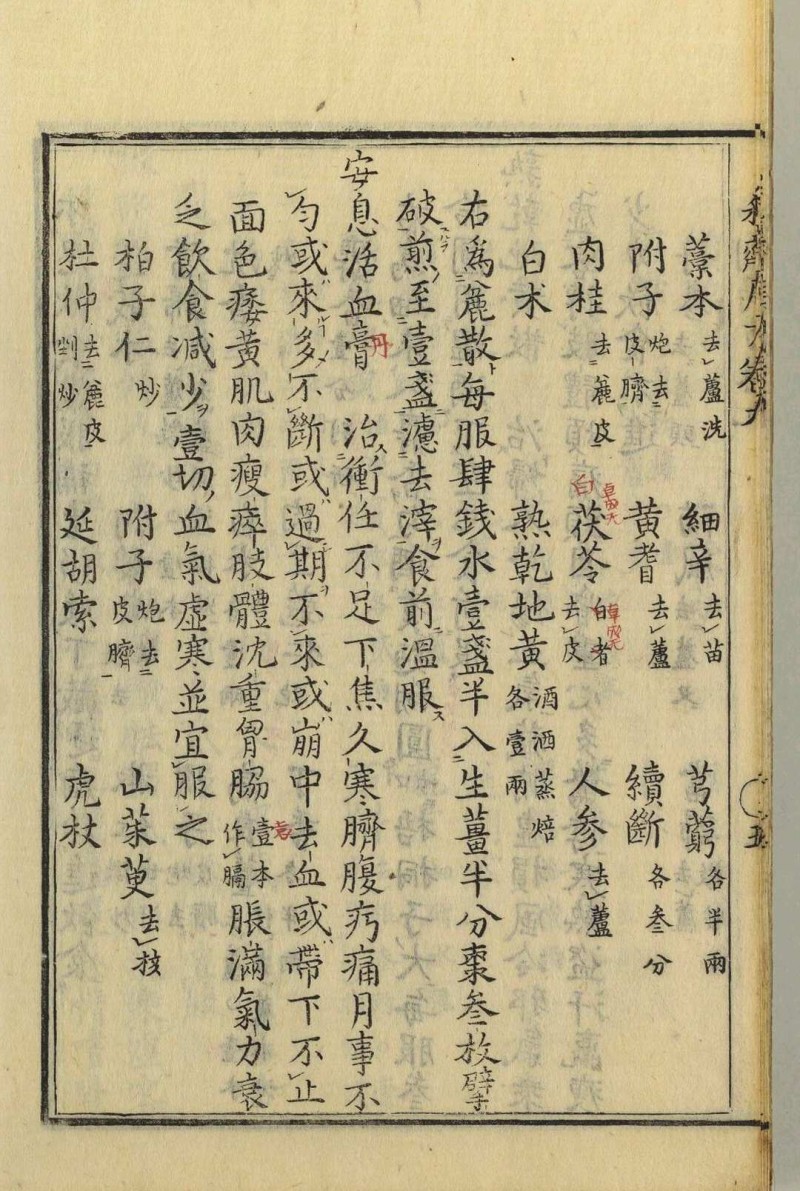 藁本去蘆洗 細辛去苗 芎藭各半兩
附子炮去皮臍 黃耆去蘆 續斷各叁分
肉桂去麄皮 白茯苓白者去皮 人參去蘆
白朮 熟乾地黃酒洒蒸焙各壹兩
右爲麄散每服肆錢水壹盞半入生薑半分棗叁枚擘
破煎至壹盞濾去滓食前溫服
安息活血膏丹 治衝任不足下焦久寒臍腹疠痛月事不
勻或來多不斷或過期不來或崩中去血或帶下不止
面色痿黃肌肉瘦瘁肢體沈重胷脇壹本作膈脹滿氣力衰
乏飲食減少壹切血氣虛寒並宜服之
柏子仁炒 附子炮去皮臍 山茱萸去核
杜仲去麄皮剉炒 延胡索 虎杖